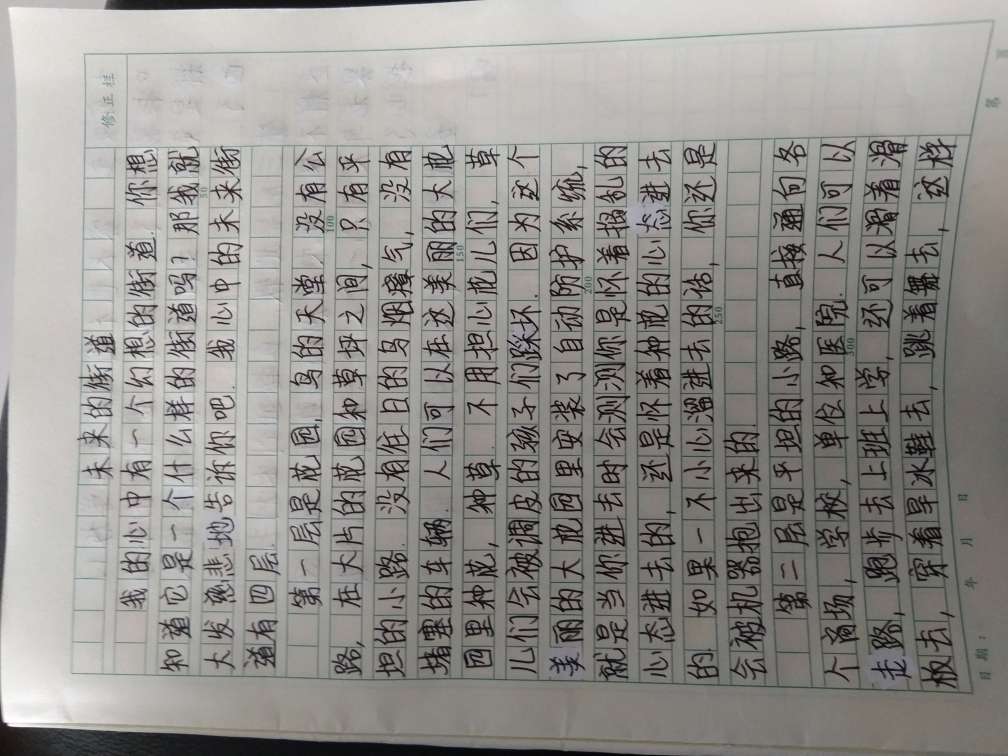 修正栏
未来的街道
我的心中有一个幻想的街道．你想
知道它是一个什么样的街道吗？那我就
大发慈悲地告诉你吧．我心中的未来街
道有四层．
第一层是花园，鸟的天堂，没有公
路，在大片的花园和草坪之间，只有平
坦的小路．没有往日的乌烟瘴气，没有
堵塞的车辆．人们可以在这美丽的大花
园里种花，种草．不用担心花儿们，草
儿们会被调皮的孩子们踩坏．因为这个
美丽的大花园里安装了自动防护系统，
就是当你进去时会测你是怀着捣乱的
心态进去的，还是怀着种花的心态进去
的．如果一不小心溜进去的话，你还是
会被机器抱出来的．
第二层是平坦的小路，直接通向各
个商场，学校，单位和医院．人们可以
走路，跑步去上班上学，还可以滑着滑
板去，穿着旱冰鞋去，跳着舞去，这样
50
100
150
200
250
300
日期： 年 月 日
第 页